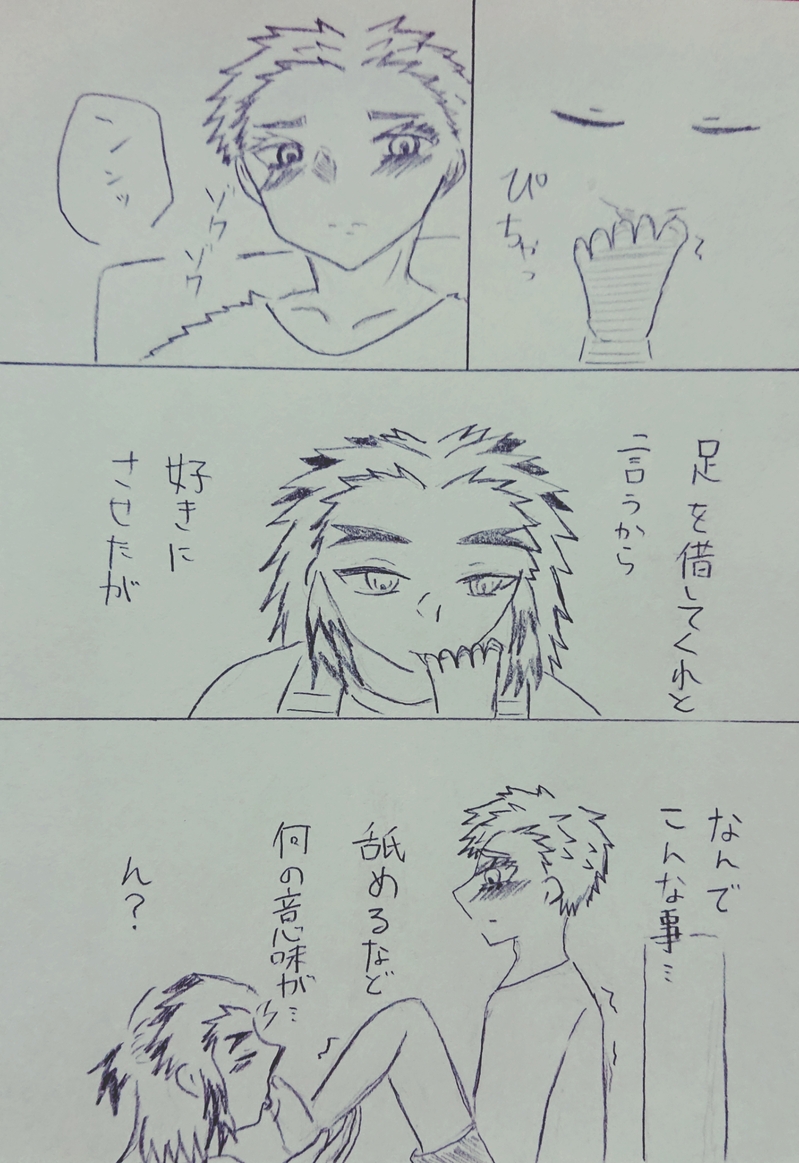 ぴちゃっ
ンンンッ
ゾワ
ゾワ
足を借してくれと
言うから
好きに
させたが
なんで
こんな事…
舐めるなど
何の意味が…
ん？